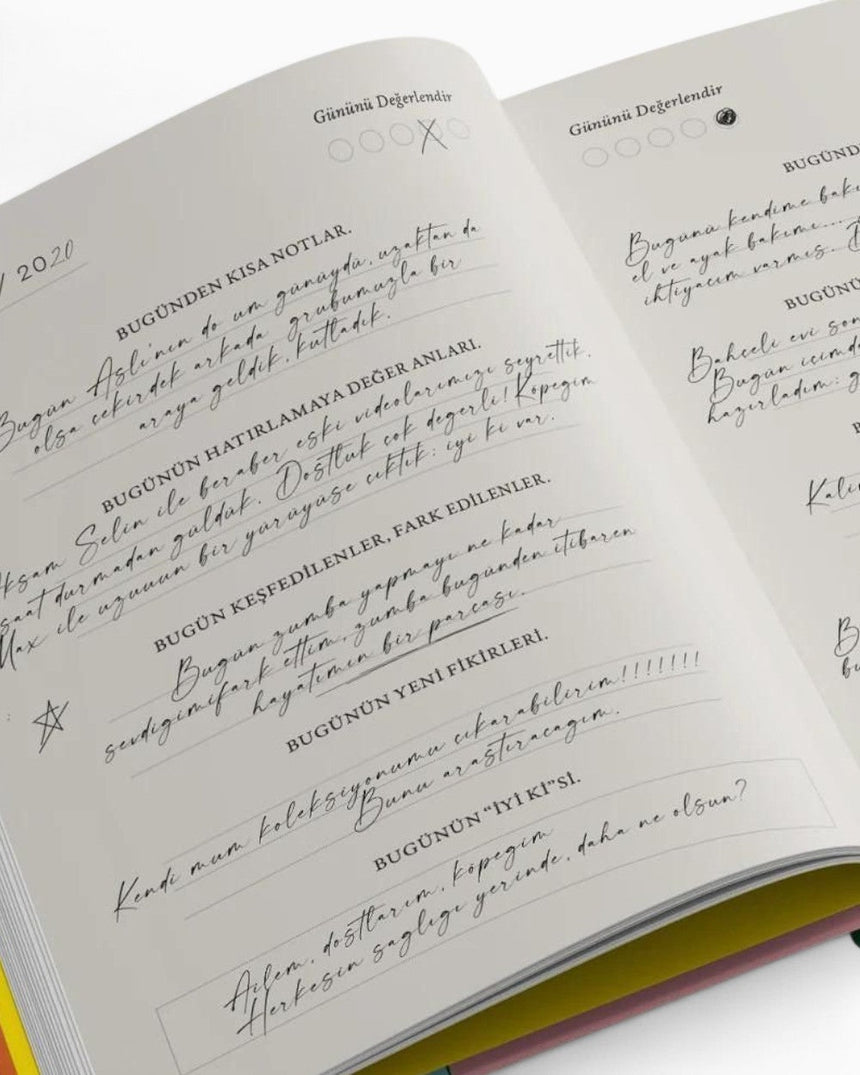 Gününü Değerlendir
/ 2020
BUGÜNDEN KISA NOTLAR.
Bugün Aslı'nın do um günüydü, uzaktan da
olsa çekirdek arkada grubumuzla bir
araya geldik, kutladık.
BUGÜNÜN HATIRLAMAYA DEĞER ANLARI.
kşam Selin ile beraber eski videolarımızı seyrettik.
saat durmadan güldük. Dostluk çok değerli! Köpeğim
Max ile uzuuun bir yürüyüşe çıktık: iyi ki var.
BUGÜN KEŞFEDİLENLER, FARK EDİLENLER.
Bugün zumba yapmayı ne kadar
sevdiğimifark ettim, zumba bugünden itibaren
hayatımın bir parçası.
BUGÜNÜN YENİ FİKİRLERİ.
Kendi mum koleksiyonumu çıkarabilirim!!!!!!!
Bunu araştıracağım.
BUGÜNÜN “İYİ Kİ”Sİ.
Ailem, dostlarım, köpeğim
Herkesin sağlığı yerinde, daha ne olsun?
Gününü Değerlendir
BUGÜND
Bugünü kendime bakı
el ve ayak bakımı...
ihtiyacım varmış.
BUGÜNÜ
Bahçeli evi son
Bugün içimde
hazırladım: g
B
Kali
B
bu